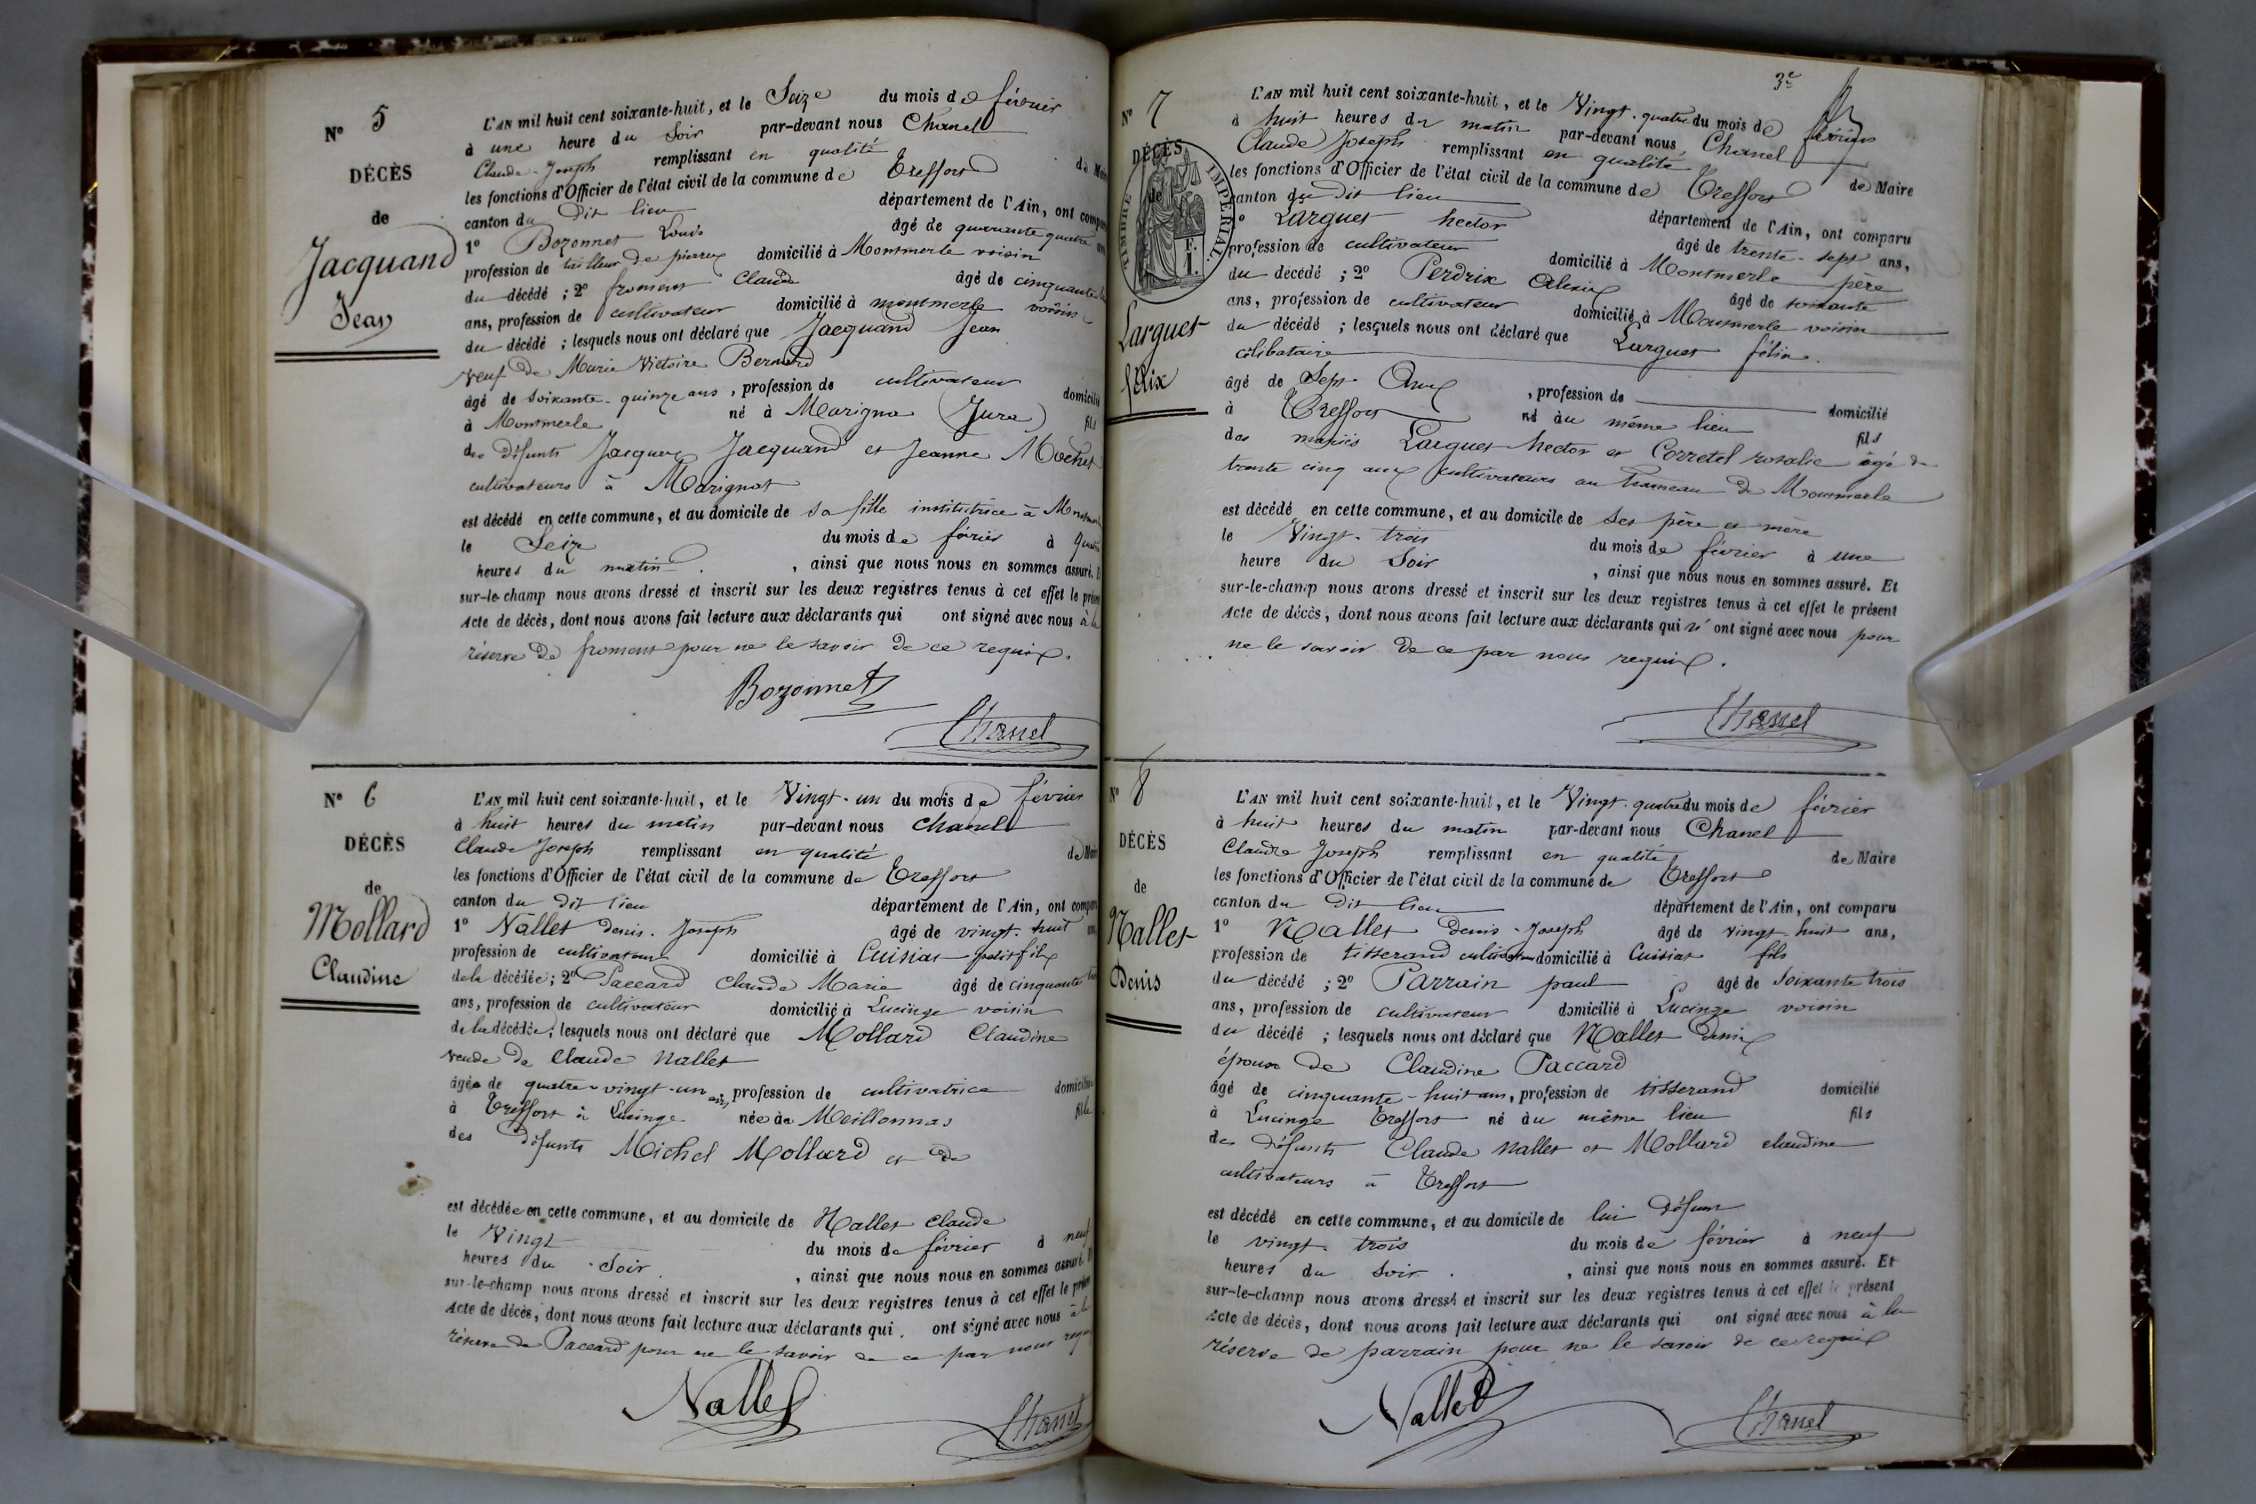 N° 5
DÉCÈS
de
Jacquand
Jean
L'AN mil huit cent soixante-huit, et le Seize du mois de février
à une heure du Soir par-devant nous Chanel
Claude-Joseph remplissant en qualité de Maire
les fonctions d'Officier de l'état civil de la commune de Treffort
canton du Dit lieu département de l'Ain, ont comparu
1° Bozonnet Louis âgé de quarante quatre ans
profession de tailleur de pierres domicilié à Montmerle voisin
du décédé ; 2° froment Claude âgé de cinquante
ans, profession de cultivateur domicilié à montmerle voisin
du décédé ; lesquels nous ont déclaré que Jacquand Jean
veuf de Marie Victoire Bernard
âgé de soixante-quinze ans, profession de cultivateur domicilié
à Montmerle né à Marigna (Jura) fils
des défunts Jacques Jacquand et Jeanne Mochet
cultivateurs à Marignat
est décédé en cette commune, et au domicile de sa fille institutrice à
le Seize du mois de février à quatre
heures du matin, ainsi que nous nous en sommes assuré. Et
sur-le-champ nous avons dressé et inscrit sur les deux registres tenus à cet effet le présent
Acte de décès, dont nous avons fait lecture aux déclarants qui ont signé avec nous à la
réserve de froment pour ne le savoir de ce requis.
Bozonnet
Chanel
N° 6
DÉCÈS
de
Mollard
Claudine
L'AN mil huit cent soixante-huit, et le Vingt-un du mois de février
à huit heures du matin par-devant nous Chanel
Claude Joseph remplissant en qualité de Maire
les fonctions d'Officier de l'état civil de la commune de Treffort
canton du dit lieu département de l'Ain, ont comparu
1° Nallet denis-Joseph âgé de vingt-huit ans
profession de cultivateur domicilié à Cuisiat petit fils
de la décédée ; 2° Paccard Claude Marie âgé de cinquante
ans, profession de cultivateur domicilié à Lucinge voisin
de la décédée ; lesquels nous ont déclaré que Mollard Claudine
veuve de Claude Nallet
âgée de quatre-vingt-un ans, profession de cultivatrice domiciliée
à Treffort à Lucinge née à Meillonnas fille
des défunts Michel Mollard et de
est décédée en cette commune, et au domicile de Nallet Claude
le Vingt du mois de février à neuf
heures du Soir, ainsi que nous nous en sommes assuré. Et
sur-le-champ nous avons dressé et inscrit sur les deux registres tenus à cet effet le présent
Acte de décès, dont nous avons fait lecture aux déclarants qui ont signé avec nous à la
réserve de Paccard pour ne le savoir de ce par nous requis
Nallet
Chanel
3e
N° 7
DÉCÈS
de
TIMBRE IMPÉRIAL
Larguet
félix
L'AN mil huit cent soixante-huit, et le Vingt-quatre du mois de février
à huit heures du matin par-devant nous Chanel
Claude Joseph remplissant en qualité de Maire
les fonctions d'Officier de l'état civil de la commune de Treffort
canton du dit lieu département de l'Ain, ont comparu
1° Larguet hector âgé de trente-sept ans,
profession de cultivateur domicilié à Montmerle père
du décédé ; 2° Perdrix Alexis âgé de soixante
ans, profession de cultivateur domicilié à Montmerle voisin
du décédé ; lesquels nous ont déclaré que Larguet félix.
célibataire
âgé de Sept Ans, profession de domicilié
à Treffort né au même lieu fils
des mariés Larguet hector et Corretel rosalie âgé de
trente cinq ans cultivateurs au hameau de Montmerle
est décédé en cette commune, et au domicile de ses père et mère
le Vingt-trois du mois de février à une
heure du Soir, ainsi que nous nous en sommes assuré. Et
sur-le-champ nous avons dressé et inscrit sur les deux registres tenus à cet effet le présent
Acte de décès, dont nous avons fait lecture aux déclarants qui n'ont signé avec nous pour
ne le savoir de ce par nous requis.
Chanel
N° 8
DÉCÈS
de
Nallet
Denis
L'AN mil huit cent soixante-huit, et le Vingt-quatre du mois de février
à huit heures du matin par-devant nous Chanel
Claude Joseph remplissant en qualité de Maire
les fonctions d'Officier de l'état civil de la commune de Treffort
canton du Dit lieu département de l'Ain, ont comparu
1° Nallet denis-Joseph âgé de vingt-huit ans,
profession de tisserand cultivateur domicilié à Cuisiat fils
du décédé ; 2° Parrain paul âgé de Soixante trois
ans, profession de cultivateur domicilié à Lucinge voisin
du décédé ; lesquels nous ont déclaré que Nallet Denis
époux de Claudine Paccard
âgé de cinquante-huit ans, profession de tisserand domicilié
à Lucinge Treffort né au même lieu fils
des défunts Claude Nallet et Mollard claudine
cultivateurs à Treffort
est décédé en cette commune, et au domicile de lui défunt
le vingt-trois du mois de février à neuf
heures du soir, ainsi que nous nous en sommes assuré. Et
sur-le-champ nous avons dressé et inscrit sur les deux registres tenus à cet effet le présent
Acte de décès, dont nous avons fait lecture aux déclarants qui ont signé avec nous à la
réserve de parrain pour ne le savoir de ce requis
Nallet
Chanel